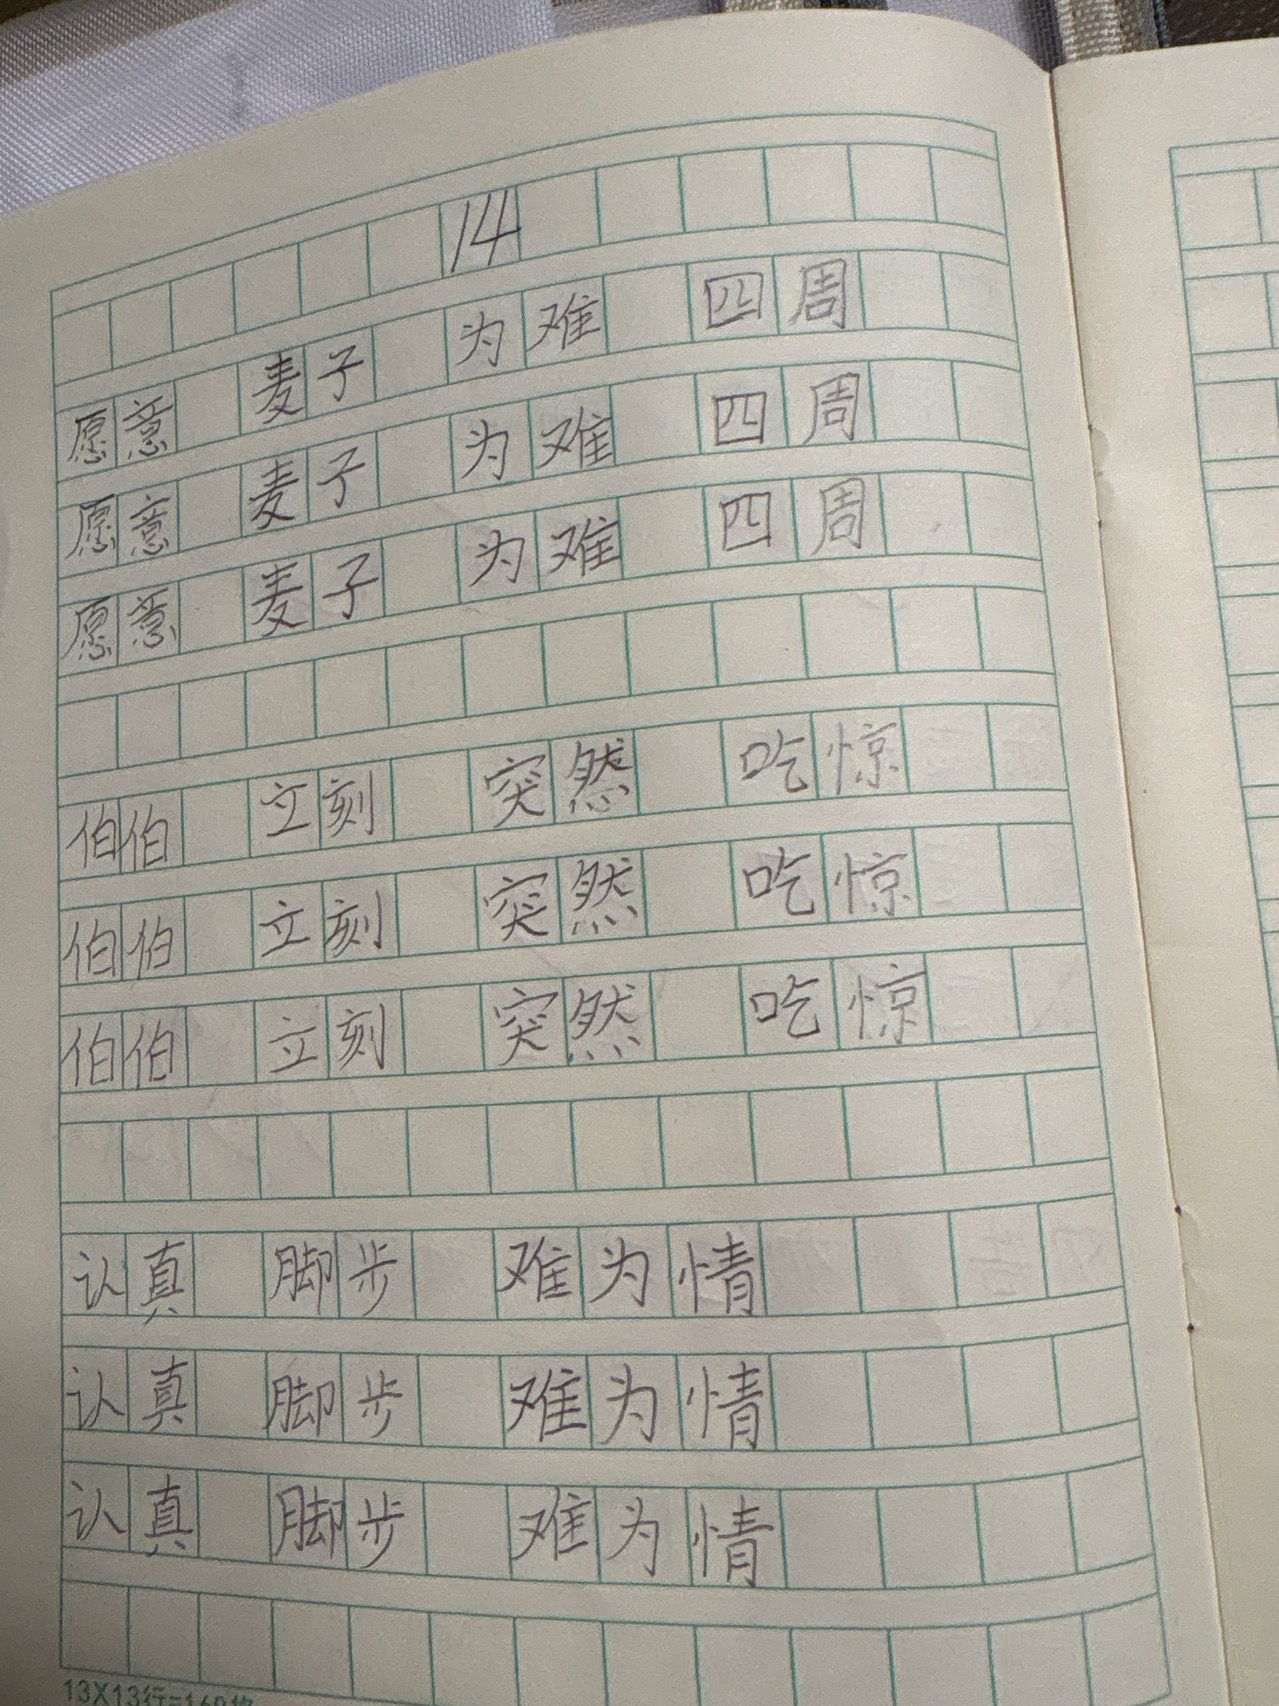 14
愿意 麦子 为难 四周
愿意 麦子 为难 四周
愿意 麦子 为难 四周
伯伯 立刻 突然 吃惊
伯伯 立刻 突然 吃惊
伯伯 立刻 突然 吃惊
认真 脚步 难为情
认真 脚步 难为情
认真 脚步 难为情
13X13行=169格